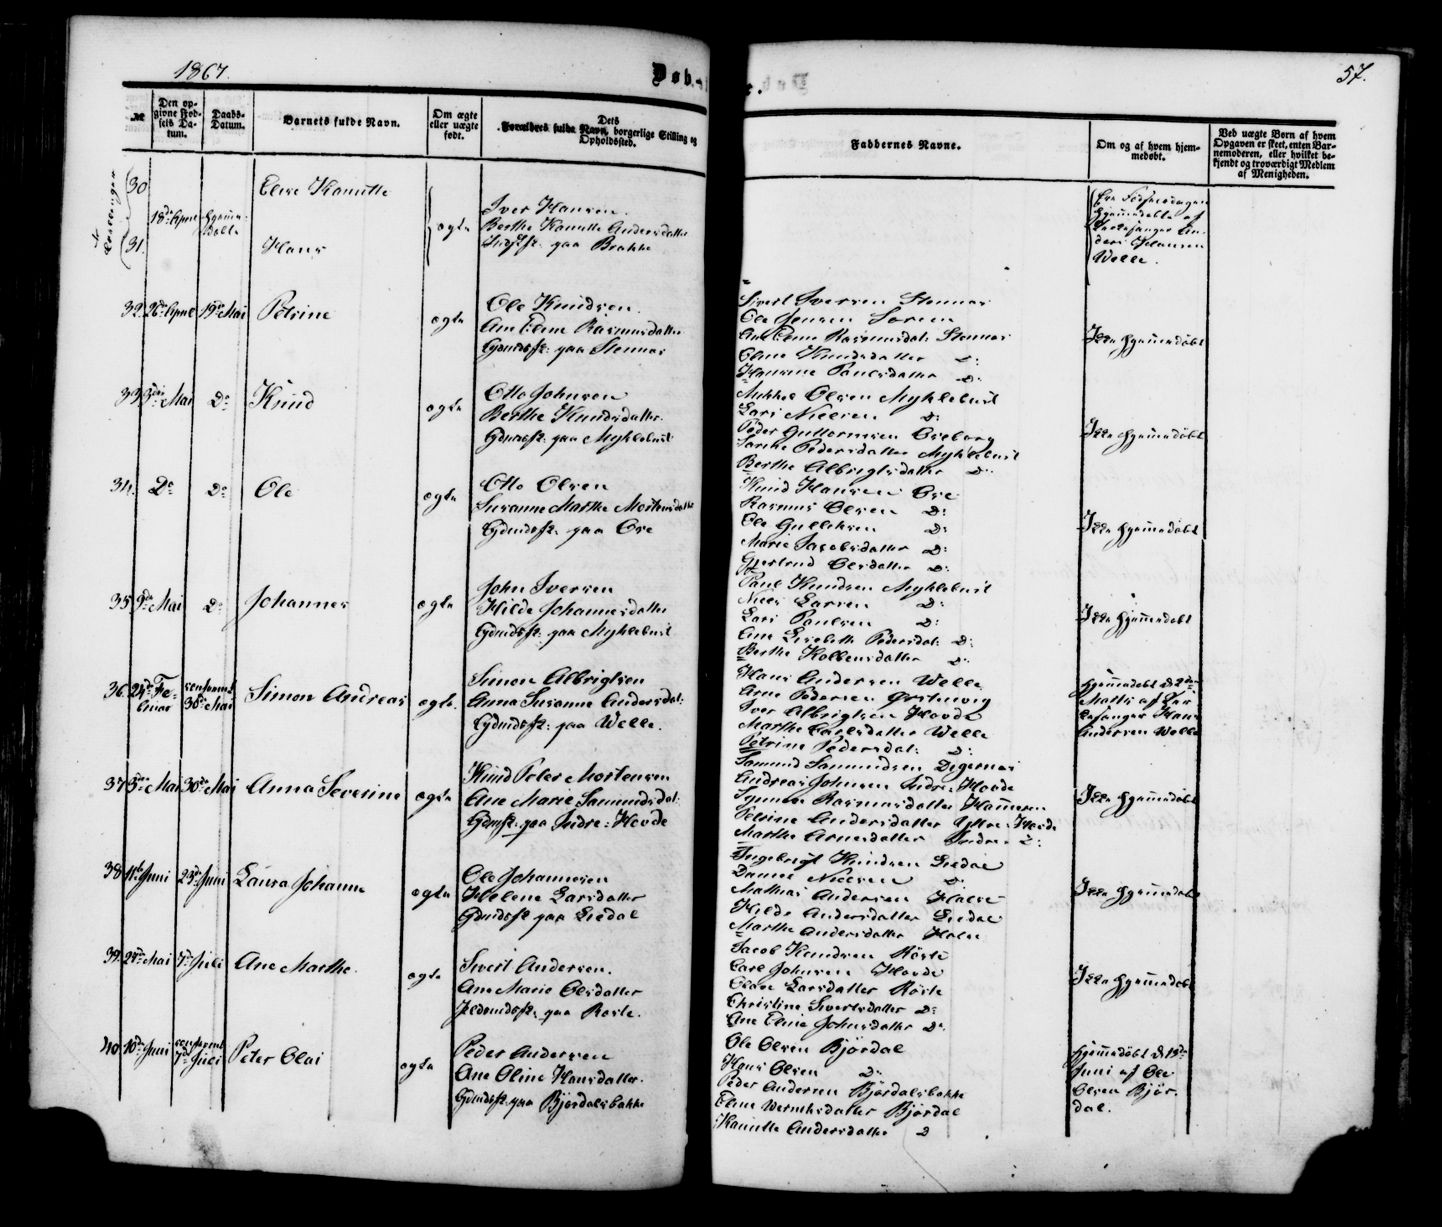 1867.
Døb
57.
№
Den opgivne Fødsels Datum.
Daabs-Datum.
Barnets fulde Navn.
Om ægte eller uægte født.
Dets Forældres fulde Navn, borgerlige Stilling og Opholdssted.
Faddernes Navne.
Om og af hvem hjemmedøbt.
Ved uægte Born af hvem Opgaven er skeet, enten Barnemoderen, eller hvilket bekjendt og troværdigt Medlem af Menigheden.
30
Elise Kanutte
18de April
31.
Hans
ægte
Iver Hansen
Berthe Kanutte Andersdatter
paa Brekke
Hjemmedøbte af
Johansen
Welle.
32. 26de April 19de Mai Petrine
ægte
Ole Knudsen
Ane Eline Rasmusdatter
Gdmdsf: paa Stennes
Sivert Iversen Stennes
Ole Jensen
Ane Eline Rasmusdat: Stennes
Oline Knudsdatter D:
Hansine Paulsdatter D:
Ikke hjemmedøbt
33. 3die Mai Do Knud
ægte
Otto Johnsen
Berthe Knudsdatter
Gdmdsf: paa Myklebust
Mikkel Olsen Myklebust
Lars Nielsen D:
Peder Guttormsen Osborg
Pedersdatter Myklebust
Berthe Albrigtsdatter D:
Ikke hjemmedøbt
34. Do Do Ole
ægte
Otto Olsen
Susanne Marthe Mortensdatter
Gdmdsf: paa Ose
Knud Hansen Ose
Rasmus Olsen D:
Ole Gulliksen D:
Marie Jacobsdatter D:
Gjertrud Olsdatter D:
Ikke hjemmedøbt
35. 9de Mai Do Johannes
ægte
John Iversen
Hilde Johannesdatter
Gdmdsf: paa Myklebust
Paul Knudsen Myklebust
Niels Larsen D:
Lars Paulsen D:
Ane Lisbeth Pedersdat: D:
Berthe Kolbensdatter D:
Ikke hjemmedøbt
36. 24de Februar 30de Mai Simon Andreas
ægte
Simon Albrigtsen
Anna Susanne Andersdat:
Gdmdsf: paa Welle.
Hans Andersen Welle
Arne Pedersen
Iver Albrigtsen Hovde
Marthe Carlsdatter Welle
Petrine Pedersdat: D:
Hjemmedøbt d.
Marts af
Hans
Andersen Welle
37. 5te Mai 30de Mai Anna Severine
ægte
Knud Peter Mortensen
Ane Marie Samundsdat:
Gdmsf: paa Indre: Hovde
Samund Samundsen Degernes
Andreas Johnsen Indre: Hovde
Synneve Rasmusdatter Hameren
Petrine Andersdatter Ytre: Hovde
Marthe Arnesdatter Indre D:
Ikke hjemmedøbt
38. 11te Juni 23de Juni Laura Johanne
ægte
Ole Johannesen
Helene Larsdatter
Gdmdsf: paa Liedal
Ingebrigt Knudsen Liedal
Daniel Nielsen D:
Mathias Andersen
Hilde Andersdatter Liedal
Marthe Andersdatter
Ikke hjemmedøbt
39. 24de Mai 7de Juli Ane Marthe
ægte
Sivert Andersen.
Ane Marie Olsdatter
paa Røste.
Jacob Knudsen Røste
Carl Johnsen Hovde
Oline Larsdatter Røste
Christine Sivertsdatter D:
Ane Eline Johnsdatter D:
Ikke hjemmedøbt
40. 10de Juni 7de Juli Peter Olai
ægte
Peder Andersen
Ane Oline Hansdatter.
Gdmdsf: paa Bjørdalsbakke
Ole Olsen Bjørdal
Hans Olsen D:
Peder Andersen Bjørdalsbakke
Eline Bjørdal
Kanutte Andersdatter D
Hjemmedøbt d.
Juni af Ole
Olsen Bjør-
dal.